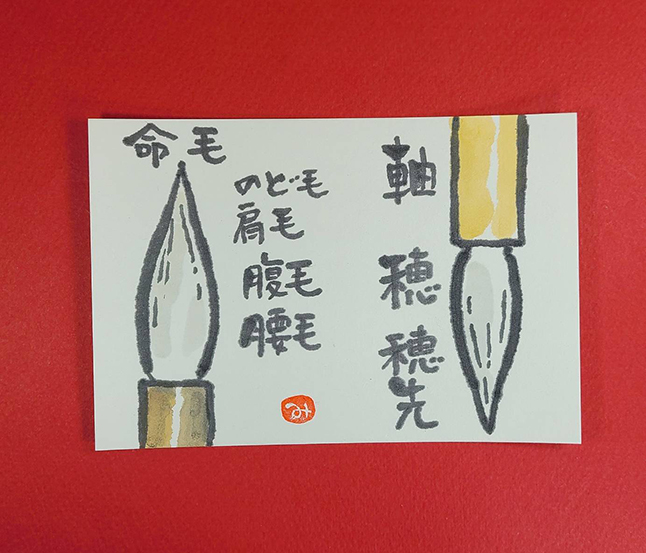 命毛
のど毛
肩毛
腹毛
腰毛
軸
穂
穂先
な